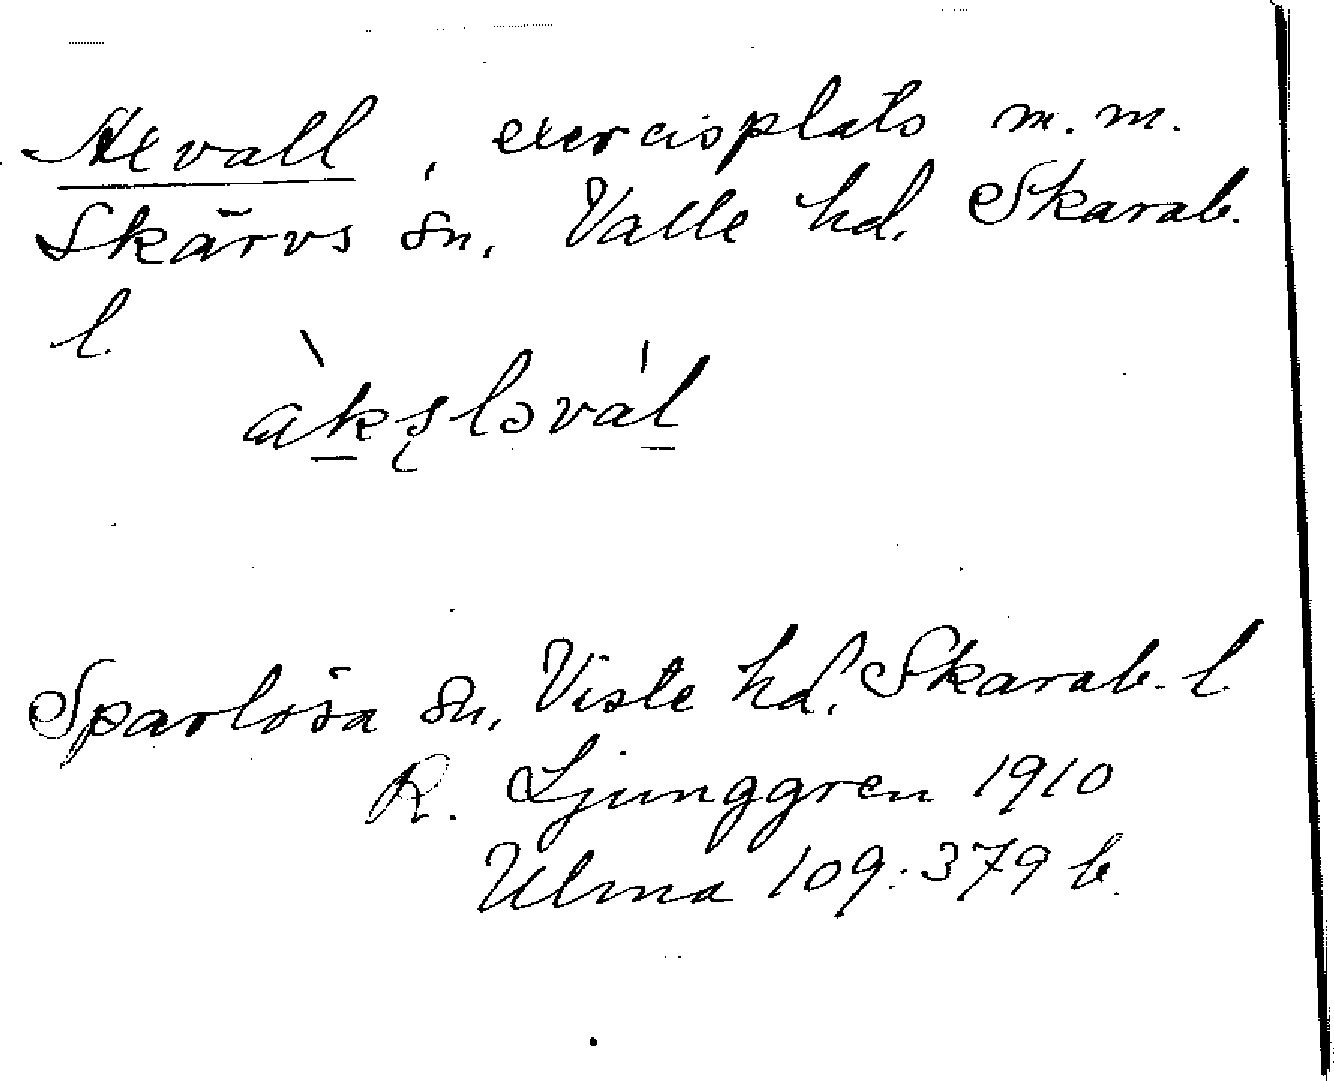 Axvall, exercisplats m.m.
Skärvs sn, Valle hd, Skarab.
l.
àksləvál
Sparlösa sn, Viste hd, Skarab. l.
R. Ljunggren 1910
Ulma 109:379 b.